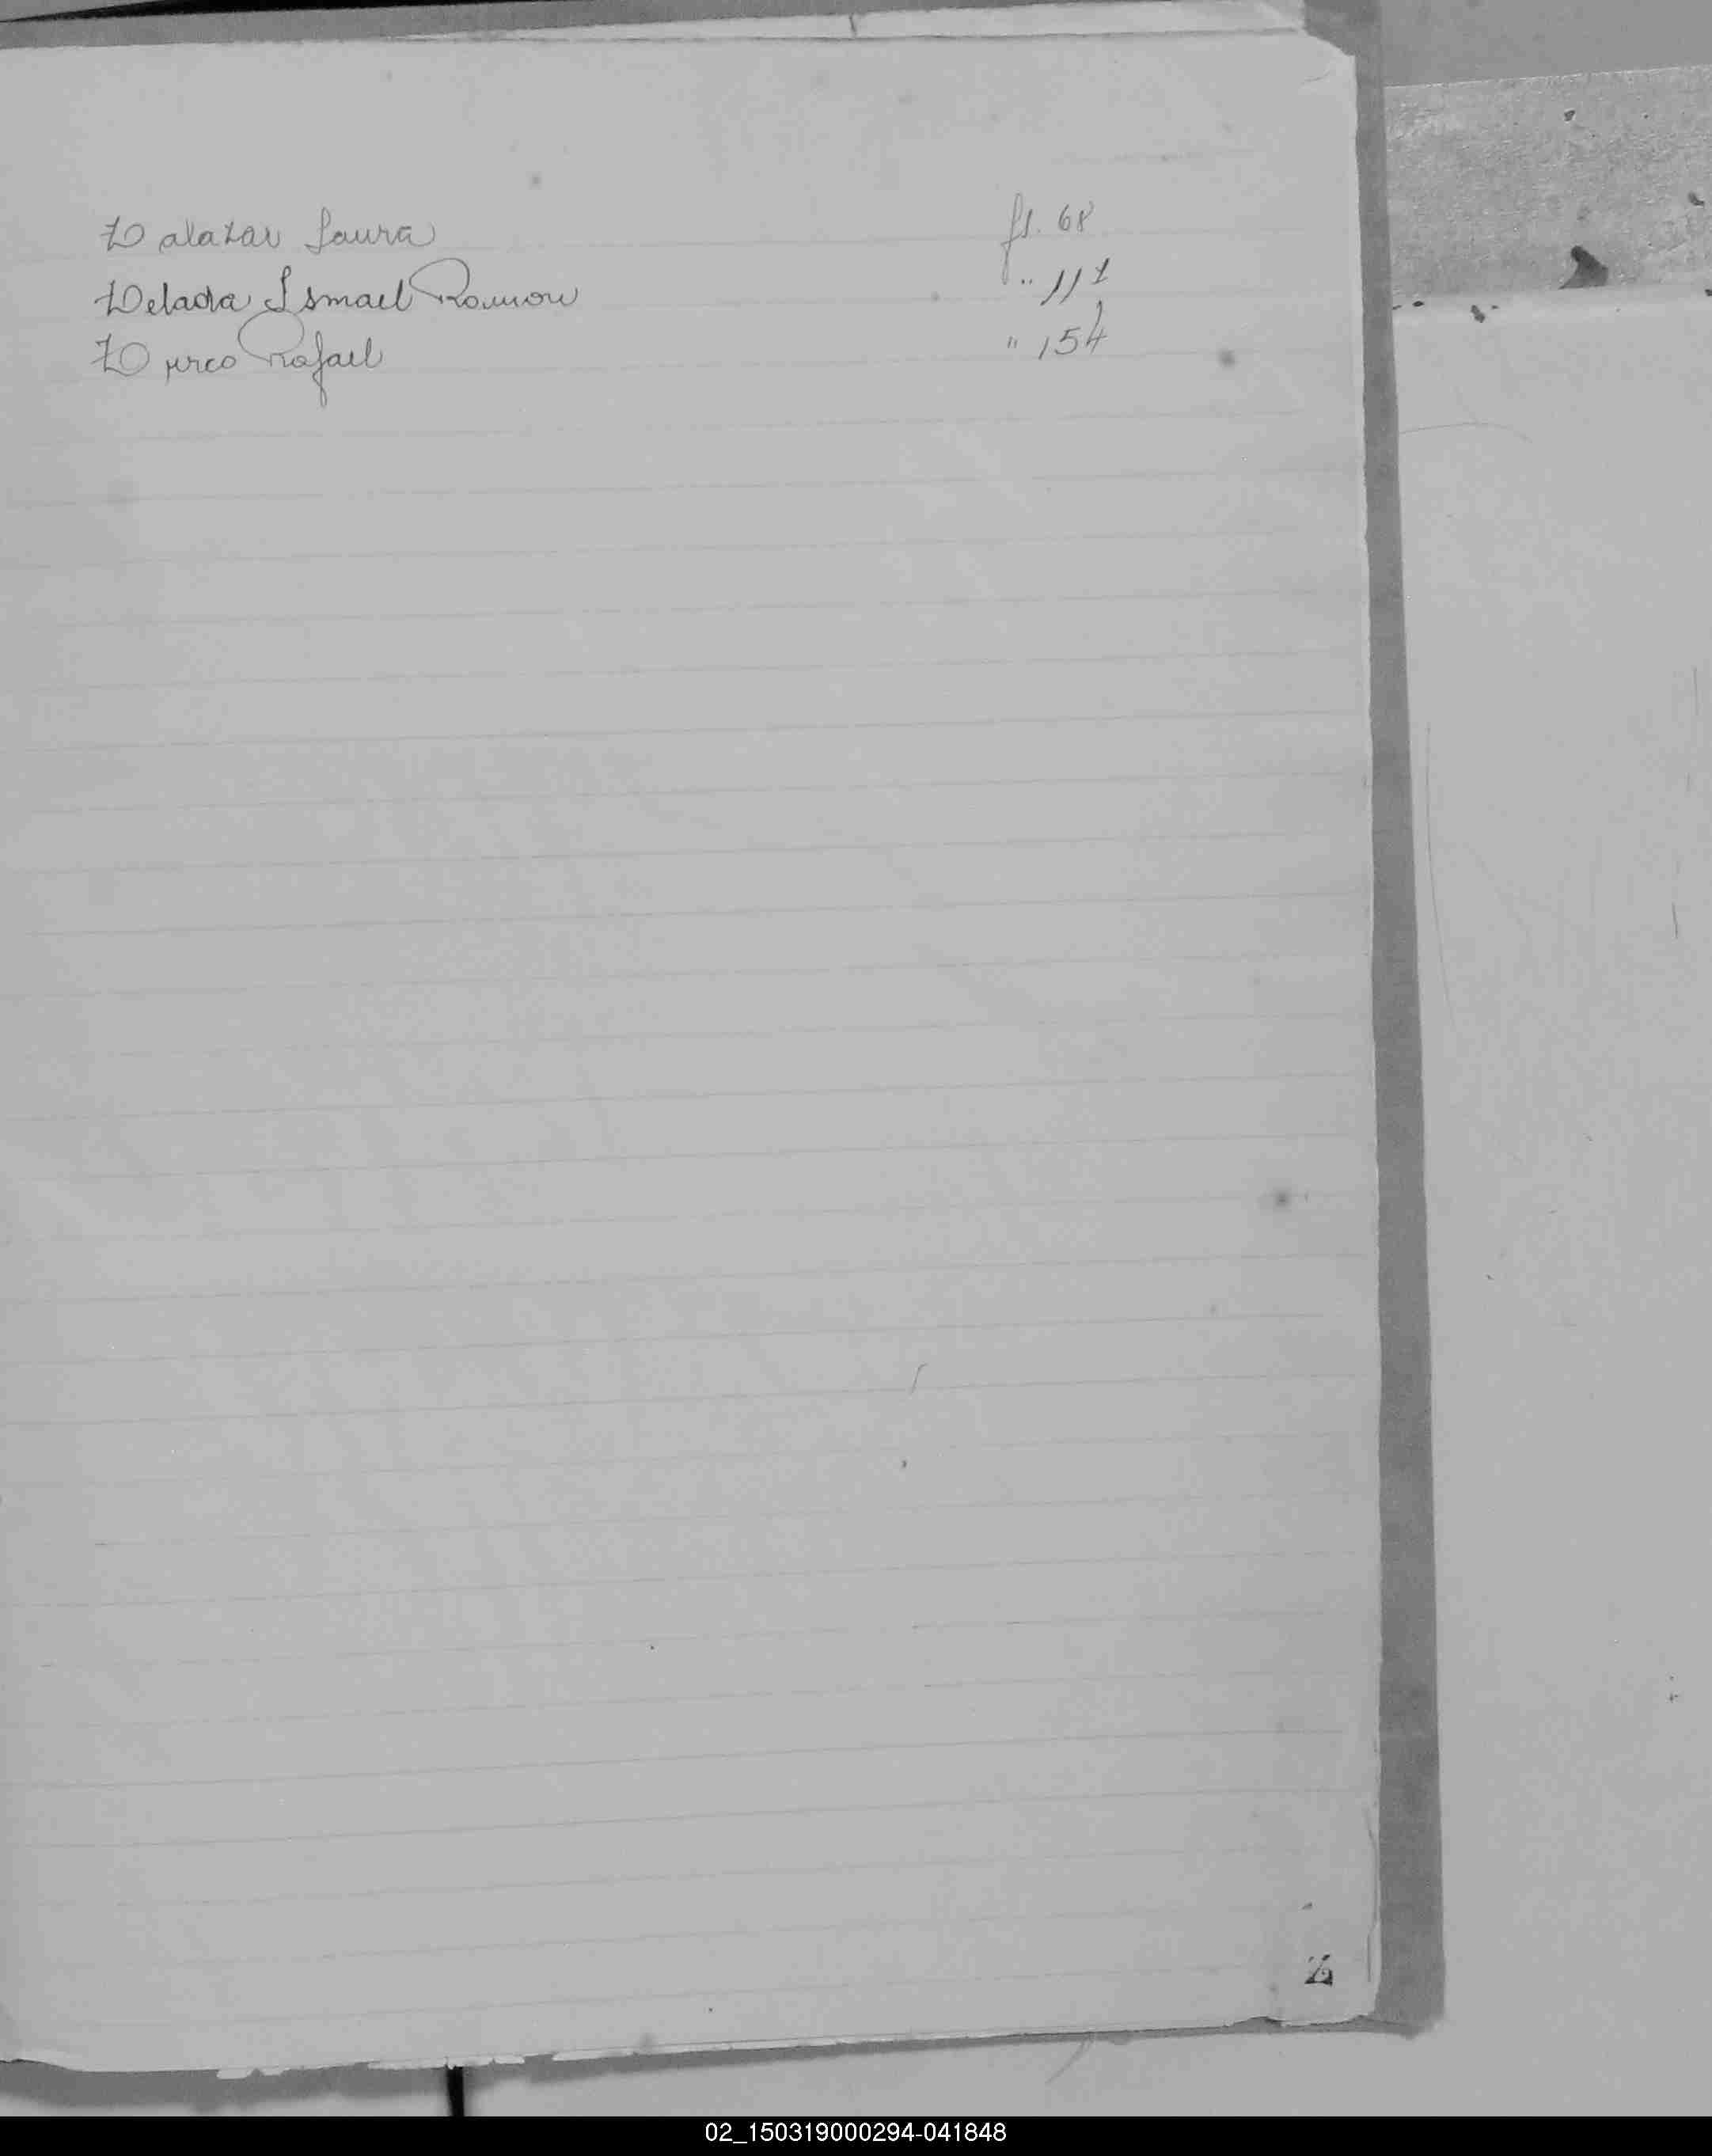 Zalazar Laura fs. 68
Zelada Ismael Ramon " 117
Zurco Rafael " 154
Z
02_150319000294-041848